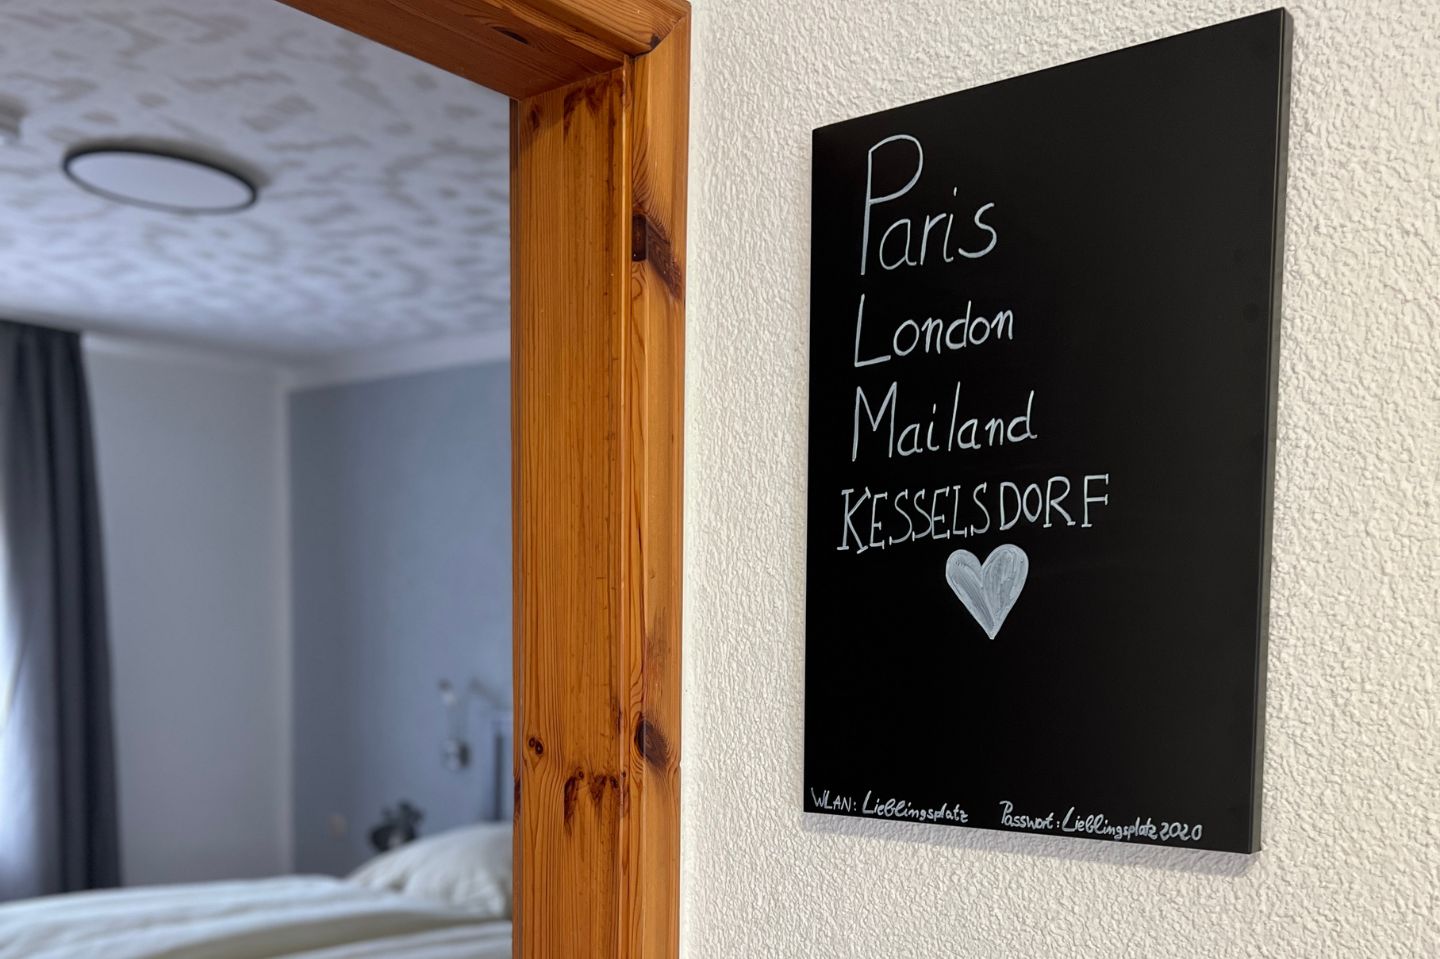 Paris
London
Mailand
KESSELSDORF
WLAN: Lieblingsplatz Passwort: Lieblingsplatz2020